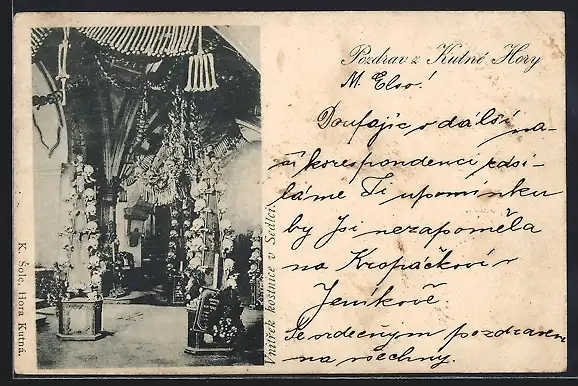 Pozdrav z Kutné Hory
M. Elso!
Doufajíc v další na-
ší korespondenci zasí-
láme Ti upomínku
by Jsi nezapoměla
na Kropáčkoví v
Jeníkově.
Se srdečným pozdravem
na všechny.
Vnitřek kostnice v Sedlci
K. Šolc, Hora Kutná.